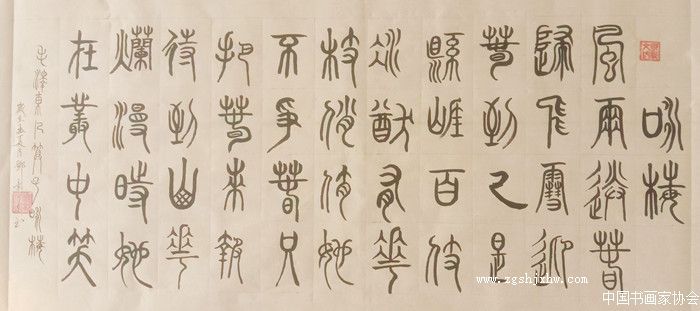 咏梅
風雨送春
歸飛雪迎
春到已是
縣崖百丈
冰猶有花
枝俏俏她
不爭春只
把春來報
待到山花
爛漫時她
在叢中笑
毛澤東卜算子咏梅
www.zgshjxhw.com
中国书画家协会